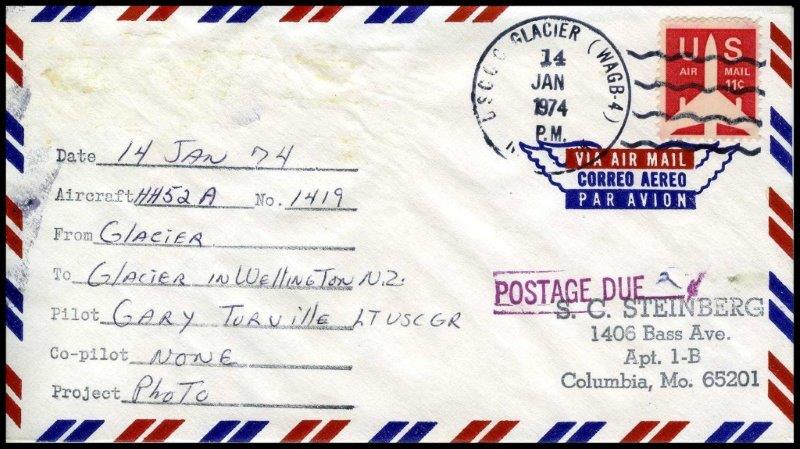 USCGC GLACIER (WAGB-4)
14
JAN
1974
P.M.
US
AIR MAIL
11¢
VIA AIR MAIL
CORREO AEREO
PAR AVION
Date 14 JAN 74
Aircraft HH52A No. 1419
From GLACIER
To GLACIER IN WELLINGTON N.Z.
Pilot GARY TORVILLE LTUSCGR
Co-pilot NONE
Project PHOTO
POSTAGE DUE 2
S. C. STEINBERG
1406 Bass Ave.
Apt. 1-B
Columbia, Mo. 65201